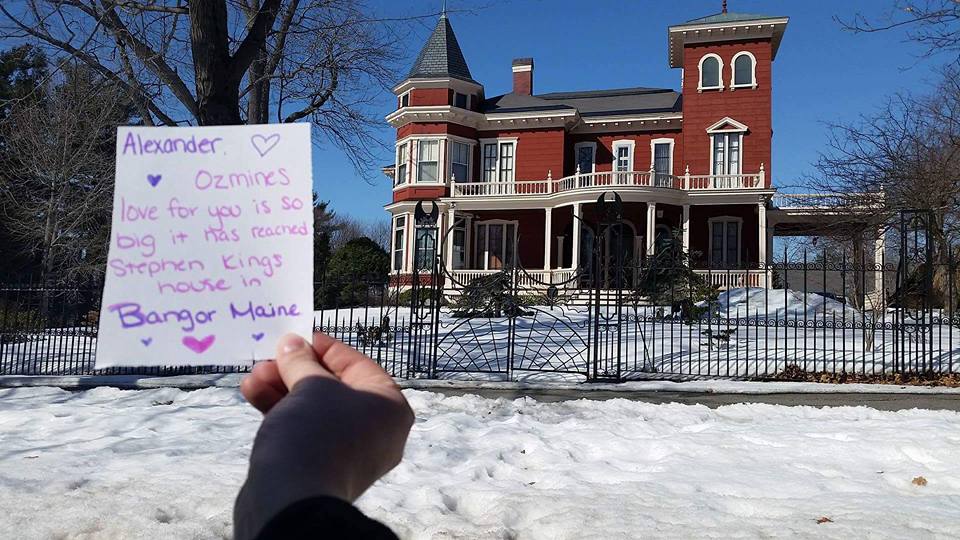 Alexander.
Ozmines
love for you is so
big it has reached
Stephen Kings
house in
Bangor Maine